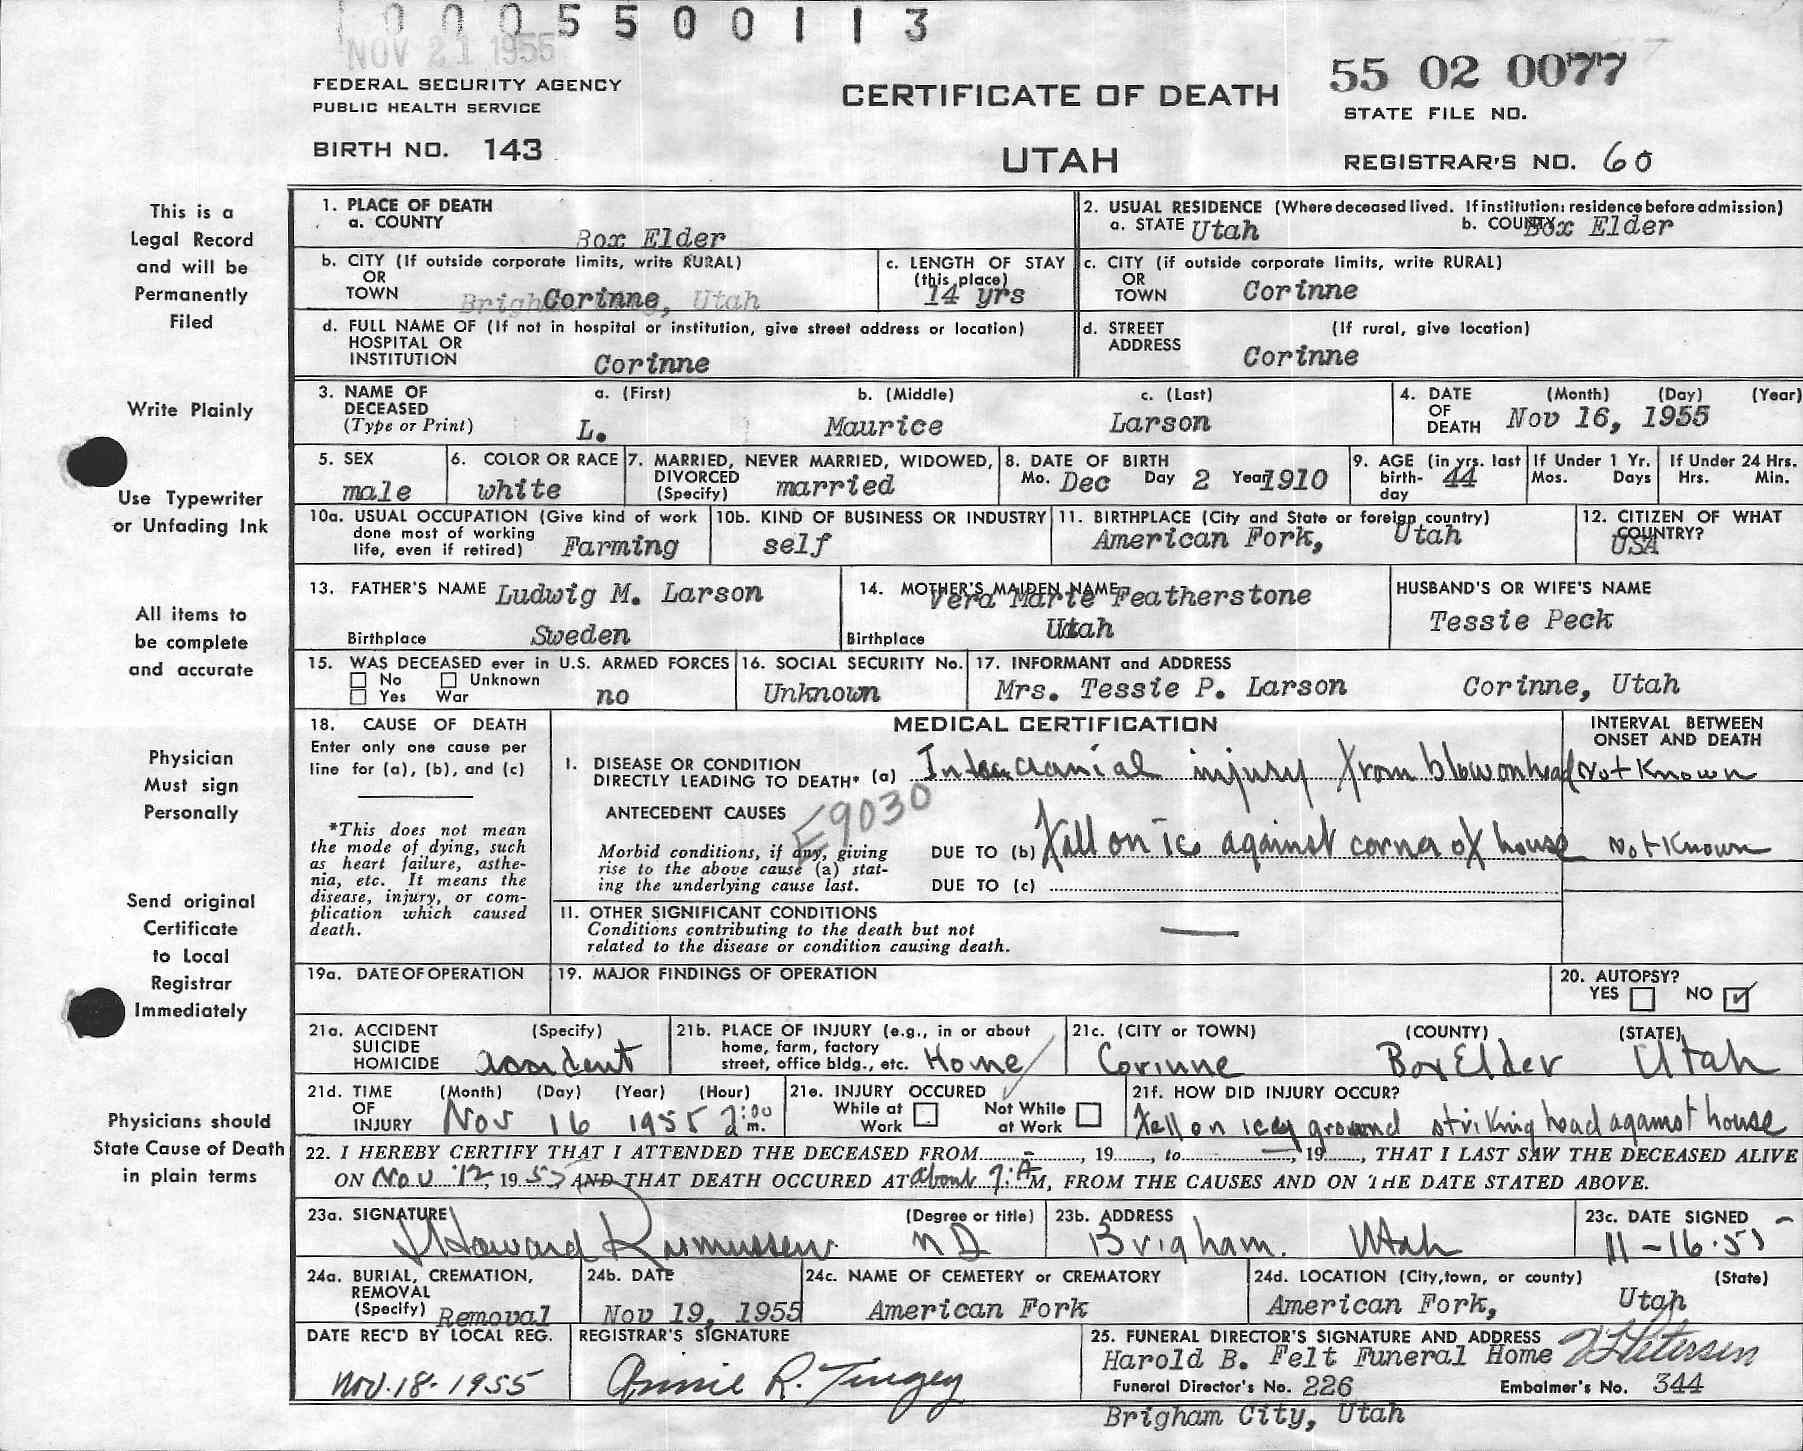 0 0 0 5 5 0 0 1 1 3
NOV 21 1955
FEDERAL SECURITY AGENCY
PUBLIC HEALTH SERVICE
BIRTH NO. 143
CERTIFICATE OF DEATH
UTAH
55 02 0077
STATE FILE NO.
REGISTRAR'S NO. 60
This is a
Legal Record
and will be
Permanently
Filed
Write Plainly
Use Typewriter
or Unfading Ink
All items to
be complete
and accurate
Physician
Must sign
Personally
Send original
Certificate
to Local
Registrar
Immediately
Physicians should
State Cause of Death
in plain terms
1. PLACE OF DEATH
a. COUNTY Box Elder
2. USUAL RESIDENCE (Where deceased lived. If institution: residence before admission)
a. STATE Utah b. COUNTY Box Elder
b. CITY (If outside corporate limits, write RURAL)
OR
TOWN Corinne, Utah
c. LENGTH OF STAY
(this place)
14 yrs
c. CITY (if outside corporate limits, write RURAL)
OR
TOWN Corinne
d. FULL NAME OF (If not in hospital or institution, give street address or location)
HOSPITAL OR
INSTITUTION Corinne
d. STREET (If rural, give location)
ADDRESS Corinne
3. NAME OF a. (First) b. (Middle) c. (Last)
DECEASED
(Type or Print) L. Maurice Larson
4. DATE (Month) (Day) (Year)
OF
DEATH Nov 16, 1955
5. SEX
male
6. COLOR OR RACE
white
7. MARRIED, NEVER MARRIED, WIDOWED,
DIVORCED
(Specify) married
8. DATE OF BIRTH
Mo. Dec Day 2 Year 1910
9. AGE (in yrs. last
birth-
day 44
If Under 1 Yr.
Mos. Days
If Under 24 Hrs.
Hrs. Min.
10a. USUAL OCCUPATION (Give kind of work
done most of working
life, even if retired) Farming
10b. KIND OF BUSINESS OR INDUSTRY
self
11. BIRTHPLACE (City and State or foreign country)
American Fork, Utah
12. CITIZEN OF WHAT
COUNTRY?
USA
13. FATHER'S NAME Ludwig M. Larson
Birthplace Sweden
14. MOTHER'S MAIDEN NAME Vera Marie Featherstone
Birthplace Utah
HUSBAND'S OR WIFE'S NAME
Tessie Peck
15. WAS DECEASED ever in U.S. ARMED FORCES
No Unknown
Yes War no
16. SOCIAL SECURITY No.
Unknown
17. INFORMANT and ADDRESS
Mrs. Tessie P. Larson Corinne, Utah
18. CAUSE OF DEATH
Enter only one cause per
line for (a), (b), and (c)
*This does not mean
the mode of dying, such
as heart failure, asthe-
nia, etc. It means the
disease, injury, or com-
plication which caused
death.
MEDICAL CERTIFICATION
INTERVAL BETWEEN
ONSET AND DEATH
I. DISEASE OR CONDITION
DIRECTLY LEADING TO DEATH* (a) Intracranial injury from blow on head Not Known
ANTECEDENT CAUSES
E9030
Morbid conditions, if any, giving
rise to the above cause (a) stat-
ing the underlying cause last.
DUE TO (b) Fall on ice against corner of house Not Known
DUE TO (c)
II. OTHER SIGNIFICANT CONDITIONS
Conditions contributing to the death but not
related to the disease or condition causing death.
19a. DATE OF OPERATION
19. MAJOR FINDINGS OF OPERATION
20. AUTOPSY?
YES NO ✓
21a. ACCIDENT (Specify)
SUICIDE
HOMICIDE accident
21b. PLACE OF INJURY (e.g., in or about
home, farm, factory
street, office bldg., etc. Home
21c. (CITY or TOWN) (COUNTY) (STATE)
Corinne Box Elder Utah
21d. TIME (Month) (Day) (Year) (Hour)
OF
INJURY Nov 16 1955 m.
21e. INJURY OCCURED
While at Work Not While at Work
21f. HOW DID INJURY OCCUR?
Fell on icey ground striking head against house
22. I HEREBY CERTIFY THAT I ATTENDED THE DECEASED FROM -, 19, to -, 19, THAT I LAST SAW THE DECEASED ALIVE
ON Nov 12, 1955 AND THAT DEATH OCCURED AT About 7:A M, FROM THE CAUSES AND ON THE DATE STATED ABOVE.
23a. SIGNATURE (Degree or title)
J Howard Rasmussen MD
23b. ADDRESS
Brigham. Utah
23c. DATE SIGNED
11-16-55
24a. BURIAL, CREMATION,
REMOVAL
(Specify) Removal
24b. DATE
Nov 19, 1955
24c. NAME OF CEMETERY or CREMATORY
American Fork
24d. LOCATION (City, town, or county) (State)
American Fork, Utah
DATE REC'D BY LOCAL REG.
Nov. 18 - 1955
REGISTRAR'S SIGNATURE
Annie R. Tingey
25. FUNERAL DIRECTOR'S SIGNATURE AND ADDRESS
Harold B. Felt Funeral Home Petersen
Funeral Director's No. 226 Embalmer's No. 344
Brigham City, Utah